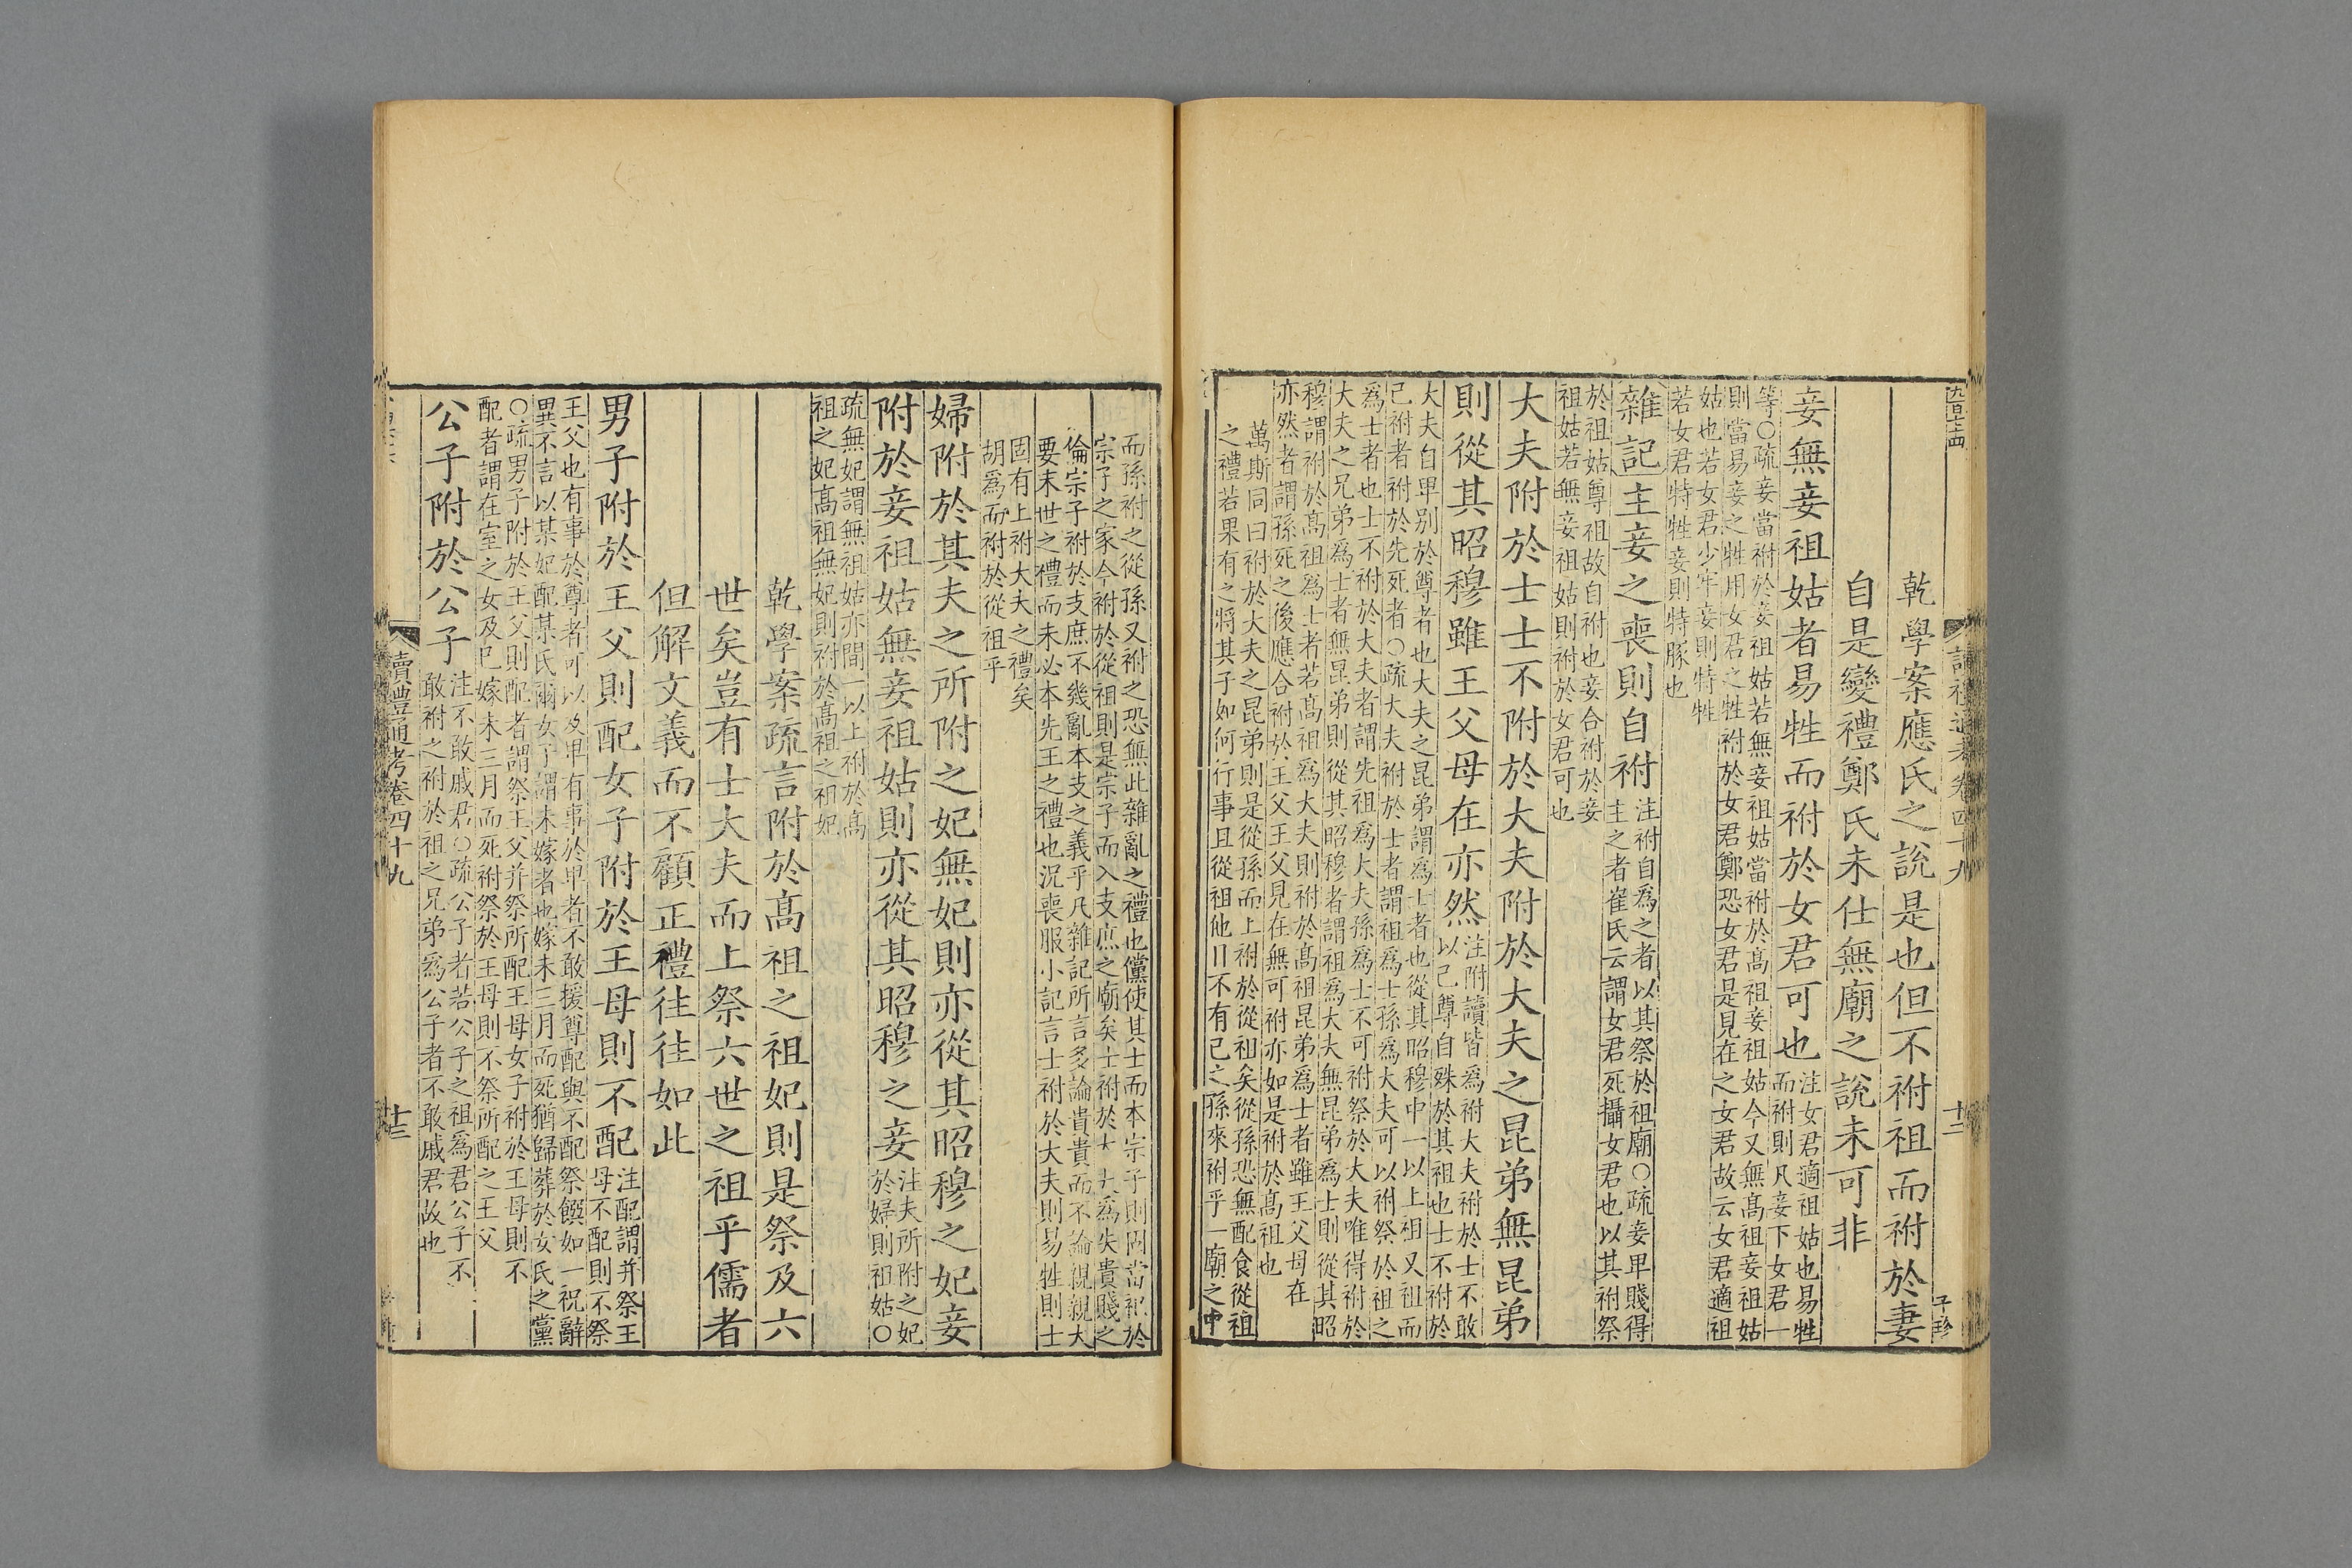 乾學案應氏之說是也但不祔祖而祔於妻
自是變禮鄭氏未仕無廟之說未可非
妾無妾祖姑者易牲而祔於女君可也
注女君適祖姑也易牲
而祔則凡妾下女君一
等〇疏妾當祔於妾祖姑若無妾祖姑當祔於高祖妾祖姑今又無高祖妾祖姑
則當易妾之牲用女君之牲祔於女君鄭恐女君是見在之女君故云女君適祖
姑也若女君少牢妾則特牲
若女君特牲妾則特豚也
雜記主妾之喪則自祔
注祔自爲之者以其祭於祖廟〇疏妾卑賤得
主之者崔氏云謂女君死攝女君也以其祔祭
於祖姑尊祖故自祔也妾合祔於妾
祖姑若無妾祖姑則祔於女君可也
大夫附於士士不附於大夫附於大夫之昆弟無昆弟
則從其昭穆雖王父母在亦然
注附讀皆爲祔大夫祔於士不敢
以己尊自殊於其祖也士不祔於
大夫自卑别於尊者也大夫之昆弟謂爲士者也從其昭穆中一以上祖又祖而
已祔者祔於先死者〇疏大夫祔於士者謂祖爲士孫爲大夫可以祔祭於祖之
爲士者也士不祔於大夫者謂先祖爲大夫孫爲士不可祔祭於大夫唯得祔於
大夫之兄弟爲士者無昆弟則從其昭穆者謂祖爲大夫無昆弟爲士則從其昭
穆謂祔於高祖爲士者若高祖爲大夫則祔於高祖昆弟爲士者雖王父母在
亦然者謂孫死之後應合祔於王父王父見在無可祔亦如是祔於高祖也
萬斯同曰祔於大夫之昆弟則是從孫而上祔於從祖矣從孫恐無配食從祖
之禮若果有之將其子如何行事且從祖他日不有己之孫來祔乎一廟之中
而孫祔之從孫又祔之恐無此雜亂之禮也儻使其士而本宗子則固當祀於
宗子之家今祔於從祖則是宗子而入支庶之廟矣士祔於大夫爲失貴賤之
倫宗子祔於支庶不幾亂本支之義乎凡雜記所言多論貴貴而不論親親大
要末世之禮而未必本先王之禮也況喪服小記言士祔於大夫則易牲則士
固有上祔大夫之禮矣
胡爲而祔於從祖乎
婦附於其夫之所附之妃無妃則亦從其昭穆之妃妾
附於妾祖姑無妾祖姑則亦從其昭穆之妾
注夫所附之妃
於婦則祖姑〇
疏無妃謂無祖姑亦間一以上祔於高
祖之妃高祖無妃則祔於高祖之祖妃
乾學案疏言附於高祖之祖妃則是祭及六
世矣豈有士大夫而上祭六世之祖乎儒者
但解文義而不顧正禮往往如此
男子附於王父則配女子附於王母則不配
注配謂并祭王
母不配則不祭
王父也有事於尊者可以及卑有事於卑者不敢援尊配與不配祭饌如一祝辭
異不言以某妃配某氏爾女子謂未嫁者也嫁未三月而死猶歸葬於女氏之黨
〇疏男子附於王父則配者謂祭王父并祭所配王母女子祔於王母則不
配者謂在室之女及已嫁未三月而死祔祭於王母則不祭所配之王父
公子附於公子
注不敢戚君〇疏公子者若公子之祖爲君公子不
敢祔之祔於祖之兄弟爲公子者不敢戚君故也
讀禮通考卷四十九
十二
讀禮通考卷四十九
十三
子珍